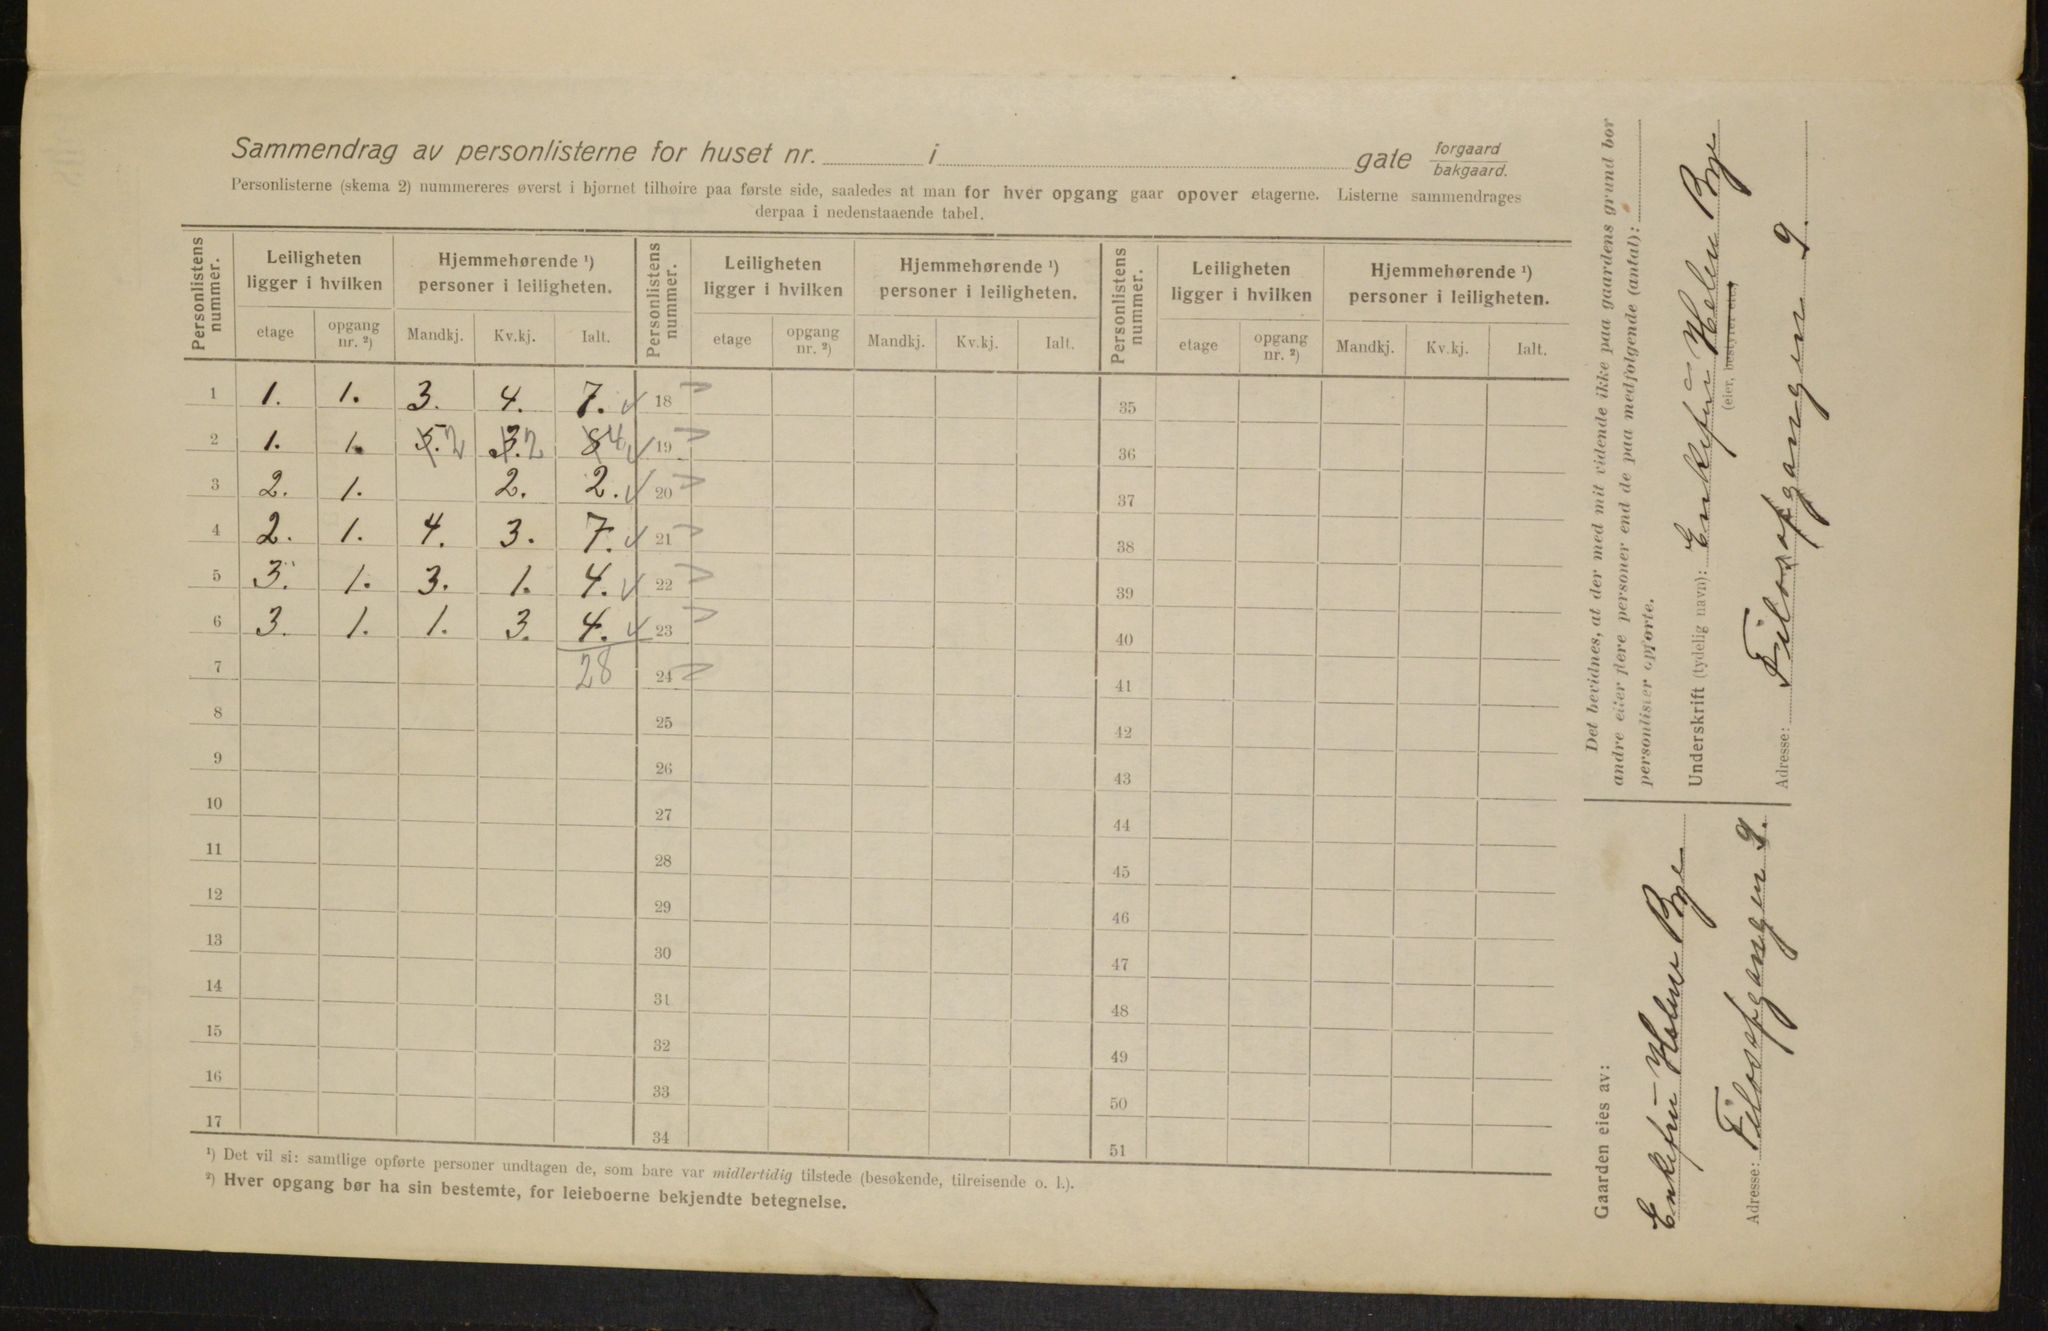 Sammendrag av personlisterne for huset nr. i gate forgaard bakgaard.
Personlisterne (skema 2) nummereres øverst i hjørnet tilhøire paa første side, saaledes at man for hver opgang gaar opover etagerne. Listerne sammendrages
derpaa i nedenstaaende tabel.
Personlistens nummer. Leiligheten ligger i hvilken Hjemmehørende ¹) personer i leiligheten. Personlistens nummer. Leiligheten ligger i hvilken Hjemmehørende ¹) personer i leiligheten. Personlistens nummer. Leiligheten ligger i hvilken Hjemmehørende ¹) personer i leiligheten.
etage opgang nr. ²) Mandkj. Kv.kj. Ialt. etage opgang nr. ²) Mandkj. Kv.kj. Ialt. etage opgang nr. ²) Mandkj. Kv.kj. Ialt.
1 1. 1. 3. 4. 7. 18 35
2 1. 1. 5. 2 3. 2 8 4 19 36
3 2. 1. 2. 2. 20 37
4 2. 1. 4. 3. 7. 21 38
5 3. 1. 3. 1. 4. 22 39
6 3. 1. 1. 3. 4. 23 40
7 28 24 41
8 25 42
9 26 43
10 27 44
11 28 45
12 29 46
13 30 47
14 31 48
15 32 49
16 33 50
17 34 51
¹) Det vil si: samtlige opførte personer undtagen de, som bare var midlertidig tilstede (besøkende, tilreisende o. l.).
²) Hver opgang bør ha sin bestemte, for leieboerne bekjendte betegnelse.
Det bevidnes, at der med mit vidende ikke paa gaardens grund bor
andre eller flere personer end de paa medfølgende (antal):
personlister opførte.
Underskrift (tydelig navn): Enkefru Helen Bye
(eier, bestyrer etc.)
Adresse: Filosofgangen 9.
Gaarden eies av:
Enkefru Helen Bye
Adresse: Filosofgangen 9.